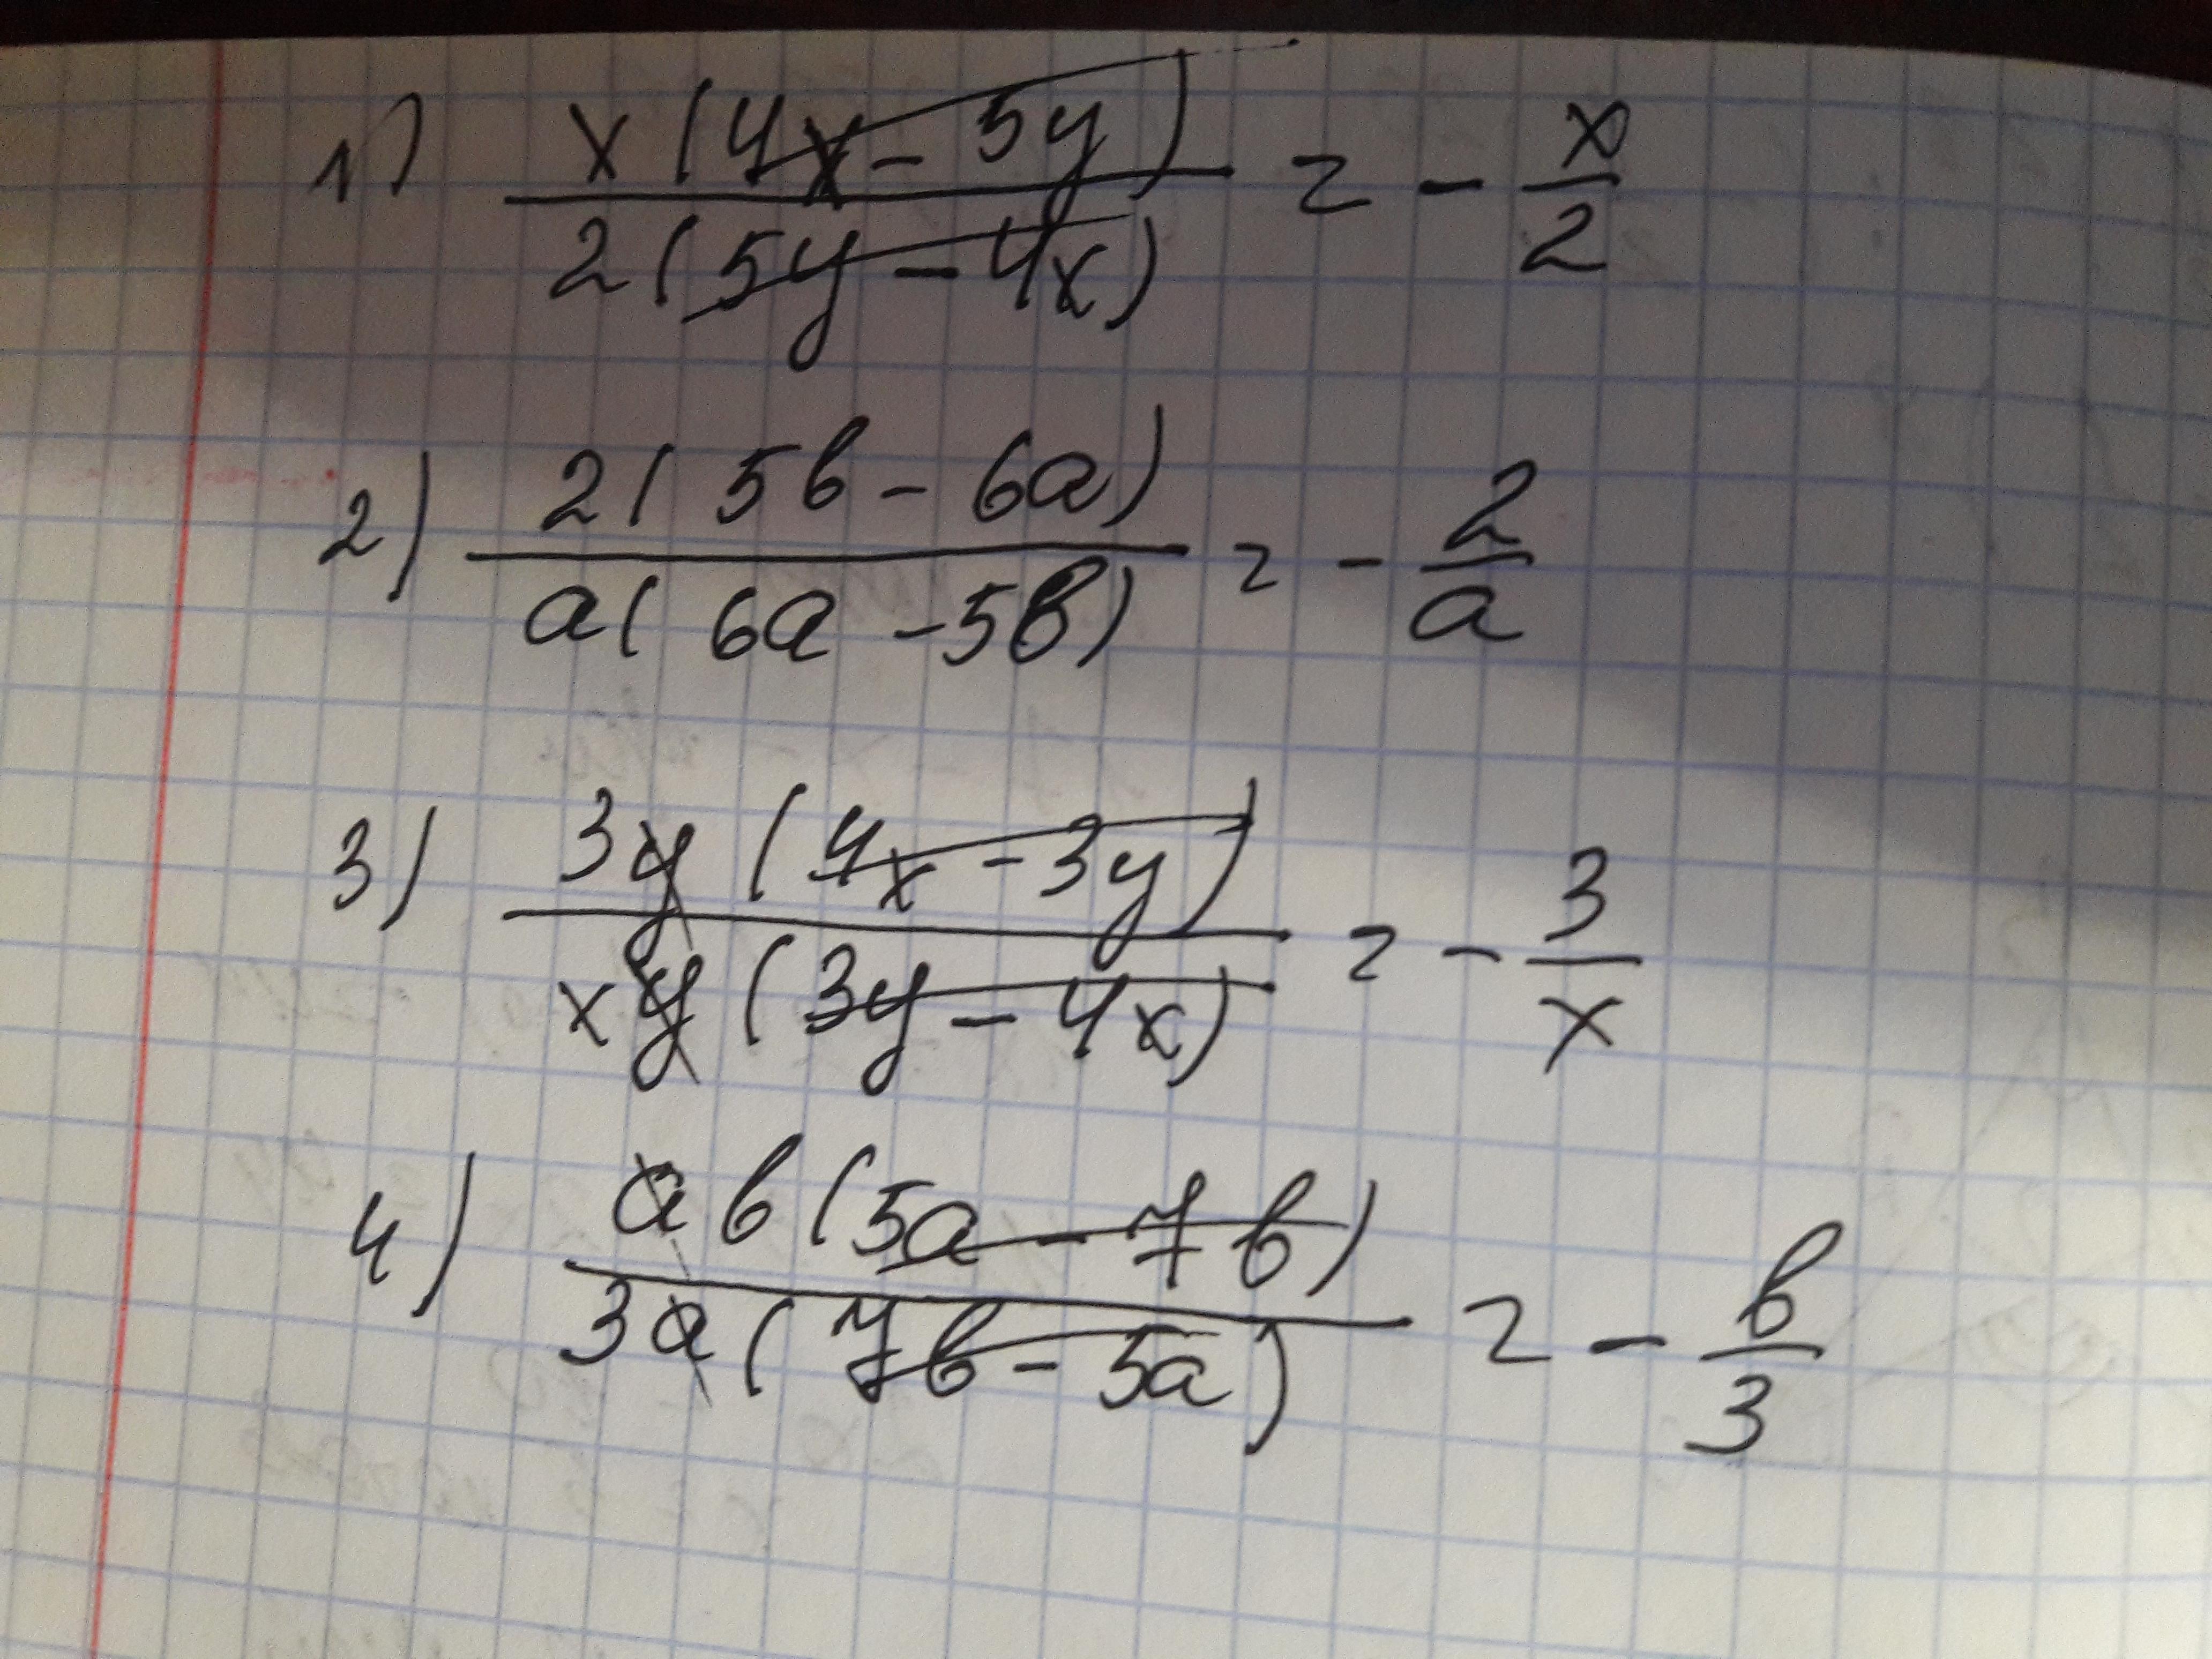 1) x(4x - 5y) / 2(5y - 4x) = - x/2
2) 2(5b - 6a) / a(6a - 5b) = - 2/a
3) 3y(4x - 3y) / xy(3y - 4x) = - 3/x
4) ab(5a - 7b) / 3a(7b - 5a) = - b/3